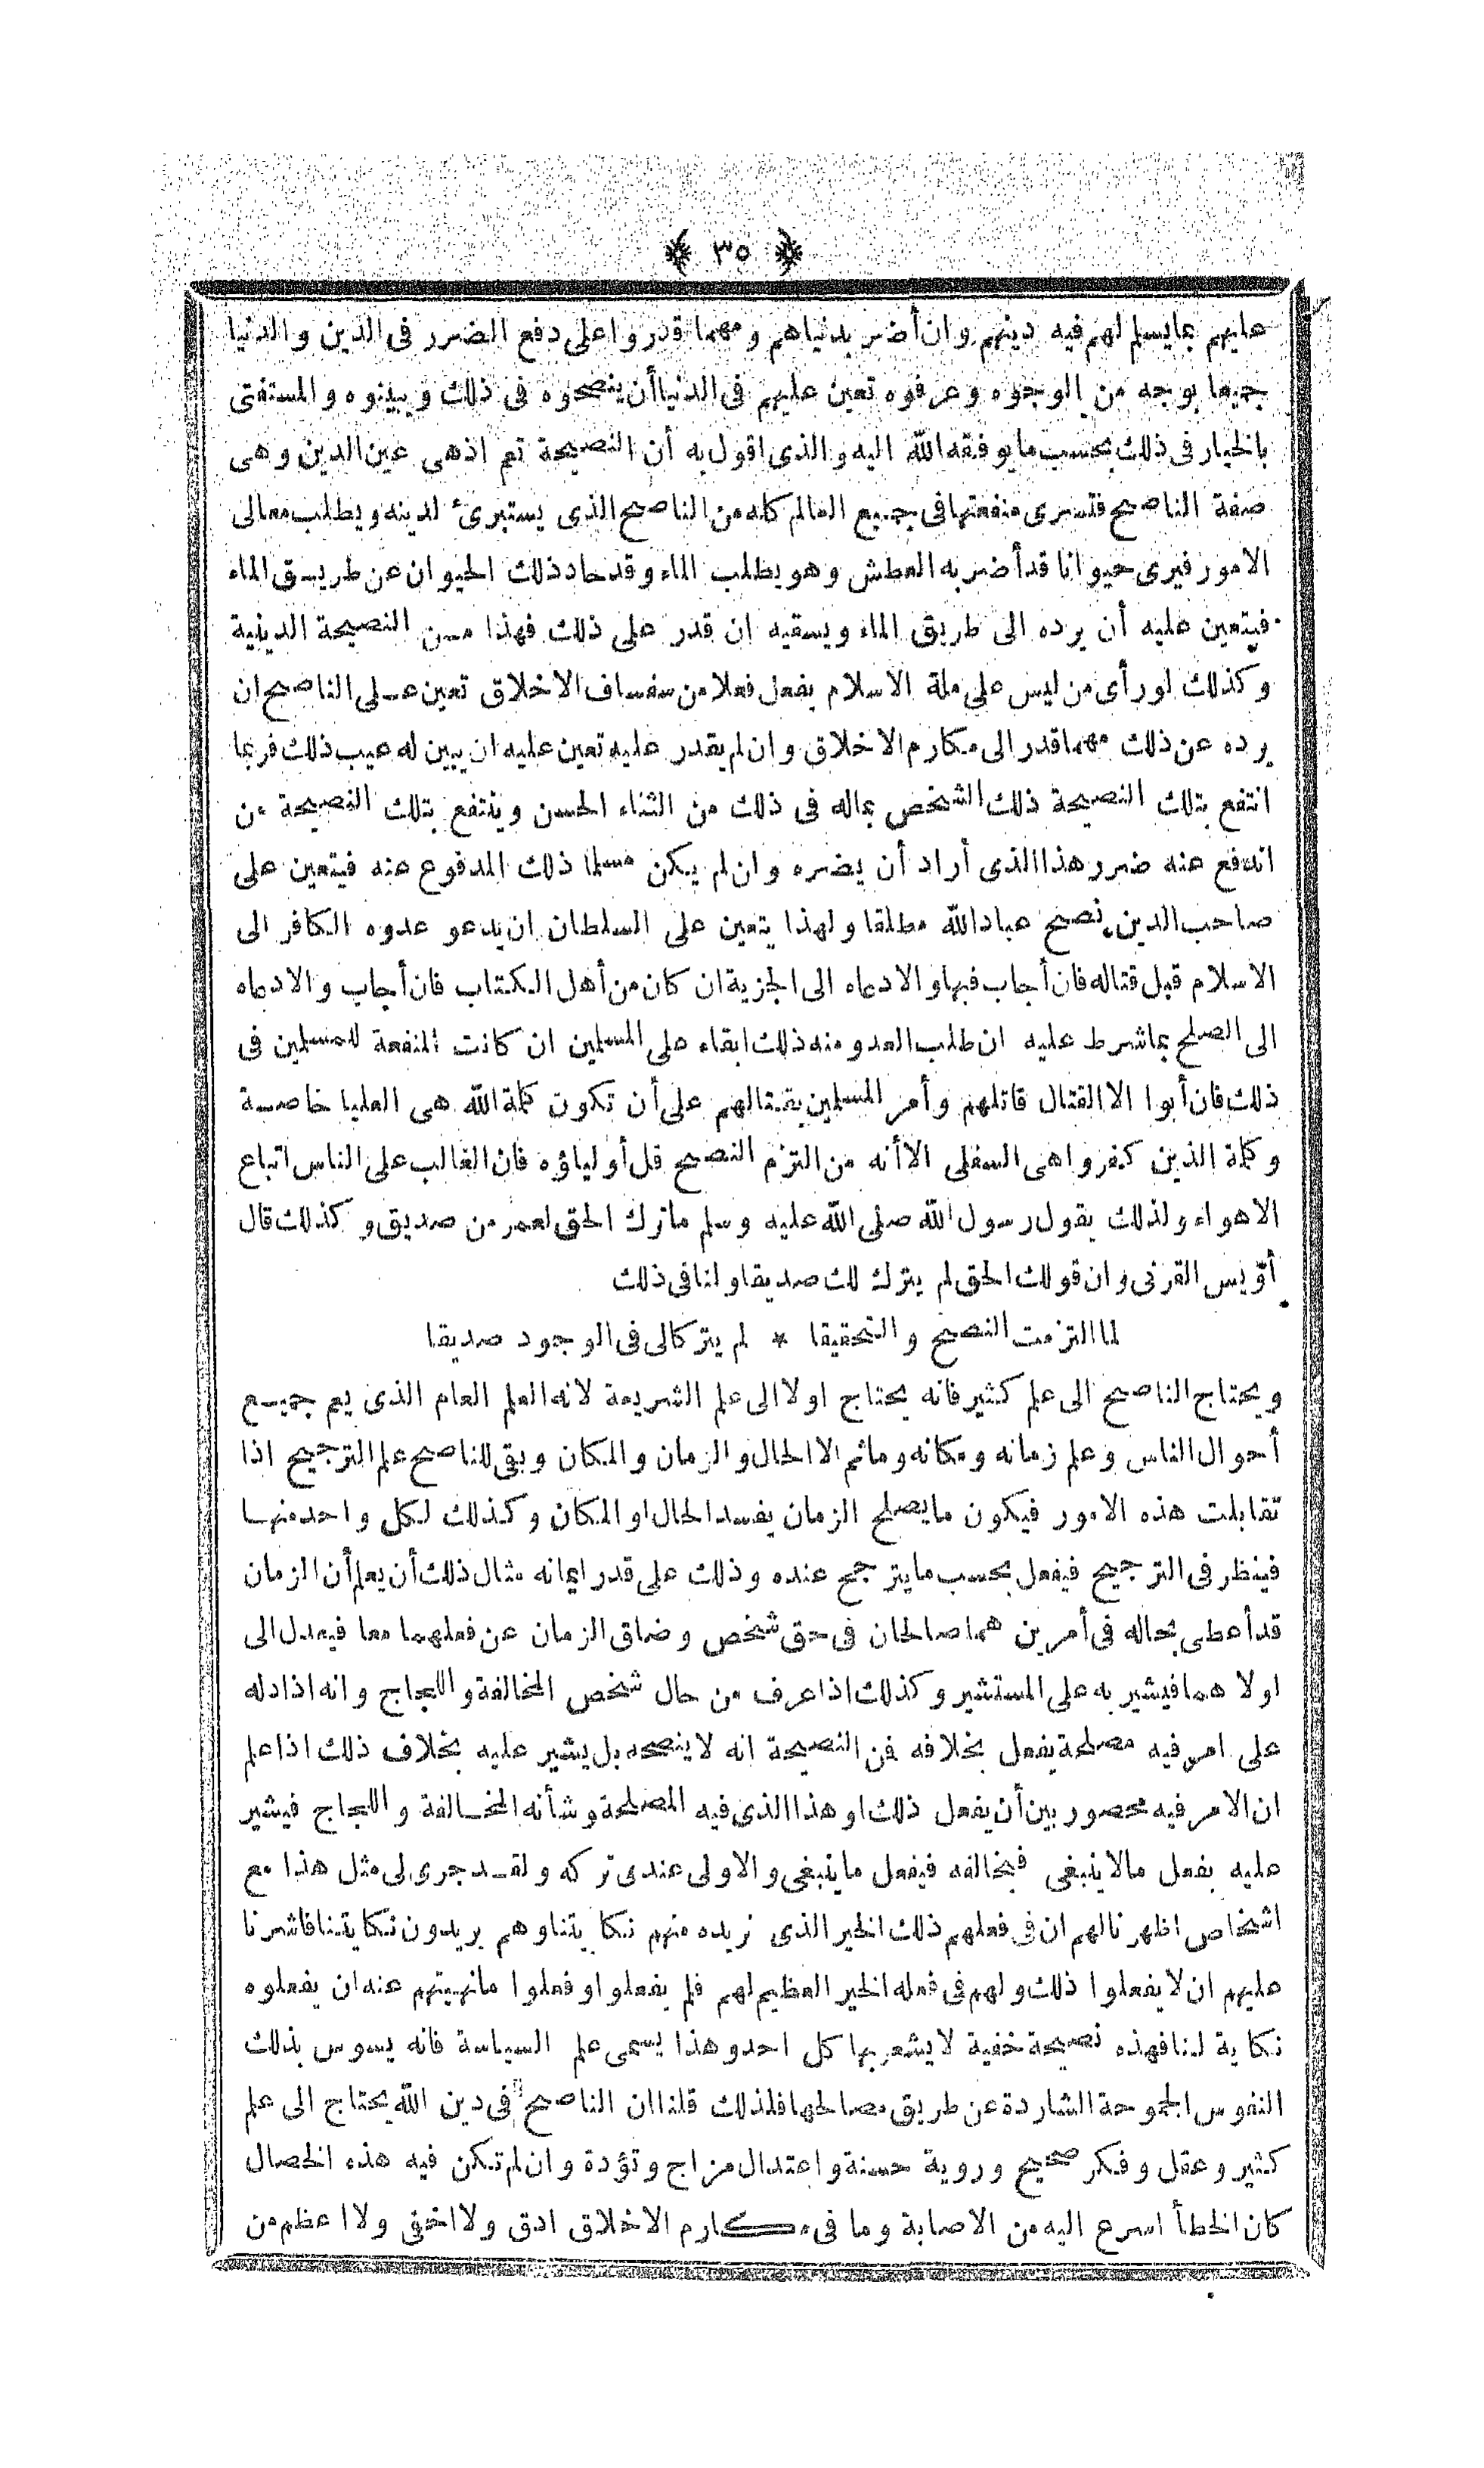 ﴿ ٣٥ ﴾
عليهم بمايسلم لهم فيه دينهم وان أضر بدنياهم ومهما قدروا على دفع الضرر فى الدين والدنيا
جميعا بوجه من الوجوه وعرفوه تعين عليهم فى الدنيا أن ينصحوه فى ذلك ويبينوه والمستفتى
بالخيار فى ذلك بحسب ما يوفقه الله اليه والذى اقول به أن النصيحة تعم اذهى عين الدين وهى
صفة الناصح فتسرى منفعتها فى جميع العالم كله من الناصح الذى يستبرئ لدينه ويطلب معالى
الامور فيرى حيوانا قد أضر به العطش وهو يطلب الماء وقد حاد ذلك الحيوان عن طريق الماء
فيتعين عليه أن يرده الى طريق الماء ويسقيه ان قدر على ذلك فهذا من النصيحة الدينية
وكذلك لو رأى من ليس على ملة الاسلام يفعل فعلا من سفساف الاخلاق تعين على الناصح ان
يرده عن ذلك مهما قدر الى مكارم الاخلاق وان لم يقدر عليه تعين عليه ان يبين له عيب ذلك فربما
انتفع بتلك النصيحة ذلك الشخص بماله فى ذلك من الثناء الحسن وينتفع بتلك النصيحة من
اندفع عنه ضرر هذا الذى أراد أن يضره وان لم يكن مسلما ذلك المدفوع عنه فيتعين على
صاحب الدين نصح عباد الله مطلقا ولهذا يتعين على السلطان ان يدعو عدوه الكافر الى
الاسلام قبل قتاله فان أجاب فبها والا دعاه الى الجزية ان كان من أهل الكتاب فان أجاب والا دعاه
الى الصلح بما شرط عليه ان طلب العدو منه ذلك ابقاء على المسلمين ان كانت المنفعة للمسلمين فى
ذلك فان أبوا الا القتال قاتلهم وأمر المسلمين بقتالهم على أن تكون كلمة الله هى العليا خاصة
وكلمة الذين كفروا هى السفلى الا أنه من التزم النصح قل أولياؤه فان الغالب على الناس اتباع
الاهواء ولذلك يقول رسول الله صلى الله عليه وسلم ماترك الحق لعمر من صديق وكذلك قال
أويس القرنى وان قولك الحق لم يترك لك صديقا ولنا فى ذلك
لما التزمت النصح والتحقيقا * لم يتركالى فى الوجود صديقا
ويحتاج الناصح الى علم كثير فانه يحتاج اولا الى علم الشريعة لانه العلم العام الذى يعم جميع
أحوال الناس وعلم زمانه ومكانه وماثم الا الحال والزمان والمكان وبقى للناصح علم الترجيح اذا
تقابلت هذه الامور فيكون مايصلح الزمان يفسد الحال او المكان وكذلك لكل واحد منها
فينظر فى الترجيح فيفعل بحسب ما يترجح عنده وذلك على قدر ايمانه مثال ذلك أن يعلم أن الزمان
قد أعطى بحاله فى أمرين هما صالحان فى حق شخص وضاق الزمان عن فعلهما معا فيعدل الى
اولا هما فيشير به على المستشير وكذلك اذا عرف من حال شخص المخالفة واللجاج وانه اذا دله
على امر فيه مصلحة يفعل بخلافه فمن النصيحة انه لا ينصحه بل يشير عليه بخلاف ذلك اذا علم
ان الامر فيه محصور بين أن يفعل ذلك او هذا الذى فيه المصلحة وشأنه المخالفة واللجاج فيشير
عليه بفعل مالا ينبغى فيخالفه فيفعل ما ينبغى والاولى عندى تركه ولقد جرى لى مثل هذا مع
اشخاص اظهر نالهم ان فى فعلهم ذلك الخير الذى نريده منهم نكايتنا وهم يريدون نكايتنا فاشرنا
عليهم ان لا يفعلوا ذلك ولهم فى فعله الخير العظيم لهم فلم يفعلوا وفعلوا مانهيتهم عنه ان يفعلوه
نكاية لنا فهذه نصيحة خفية لا يشعر بها كل احد وهذا يسمى علم السياسة فانه يسوس بذلك
النفوس الجموحة الشاردة عن طريق مصالحها فلذلك قلنا ان الناصح فى دين الله يحتاج الى علم
كثير وعقل وفكر صحيح وروية حسنة واعتدال مزاج وتؤدة وان لم تكن فيه هذه الخصال
كان الخطأ اسرع اليه من الاصابة وما فى مكارم الاخلاق ادق ولا اخفى ولا اعظم من